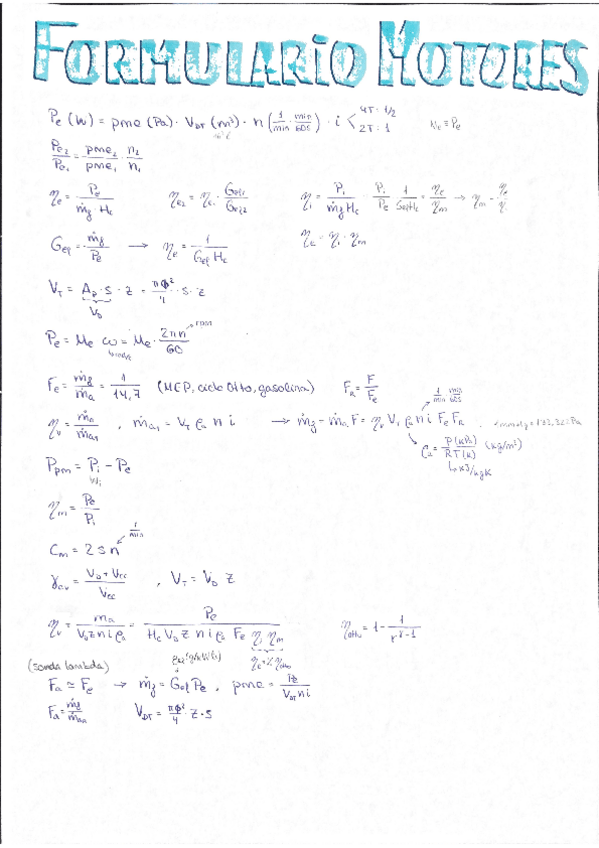 FORMULARIO MOTORES
Pe (W) = pme (Pa) · V_DT (m³) · n (1/min · min/60s) · i < 4T: 1/2 2T: 1 Ne ≡ Pe
Pe₂/Pe₁ = pme₂/pme₁ · n₂/n₁
ηe = Pe/(ṁf · Hc) ηe₂ = ηe₁ · Gef₁/Gef₂ ηi = Pi/(ṁf Hc) · Pi/Pe · 1/(Gef Hc) = ηe/ηm → ηm = ηe/ηi
Gef = ṁf/Pe → ηe = 1/(Gef Hc) ηe = ηi · ηm
V_T = Ap · s · z = πϕ²/4 · s · z
V_D
Pe = Me ω = Me · 2πn/60
Fe = ṁf/ṁa = 1/14,7 (MEP, ciclo Otto, gasolina) F_R = F/Fe
1/min · min/60s
ηv = ṁa/ṁa₁ , ṁa₁ = V_T ρa n i → ṁf = ṁa F = ηv V_T ρa n i Fe F_R 1 mmHg = 133,322 Pa
ρa = P(kPa)/(R T(K)) (kg/m³)
kJ/kgK
Ppm = Pi - Pe
Ni
ηm = Pe/Pi
1/min
Cm = 2 s n
γcv = (V_D + Vcc)/Vcc , V_T = V_D z
ηv = ma/(V_D z n i ρa) = Pe/(Hc V_D z n i ρa Fe ηi ηm) η_Otto = 1 - 1/r^γ-1
(sonda lambda)
Fa ≃ Fe → ṁf = Gef Pe , pme = Pe/(V_DT n i)
Fa = ṁf/ṁaa V_DT = πϕ²/4 · z · s